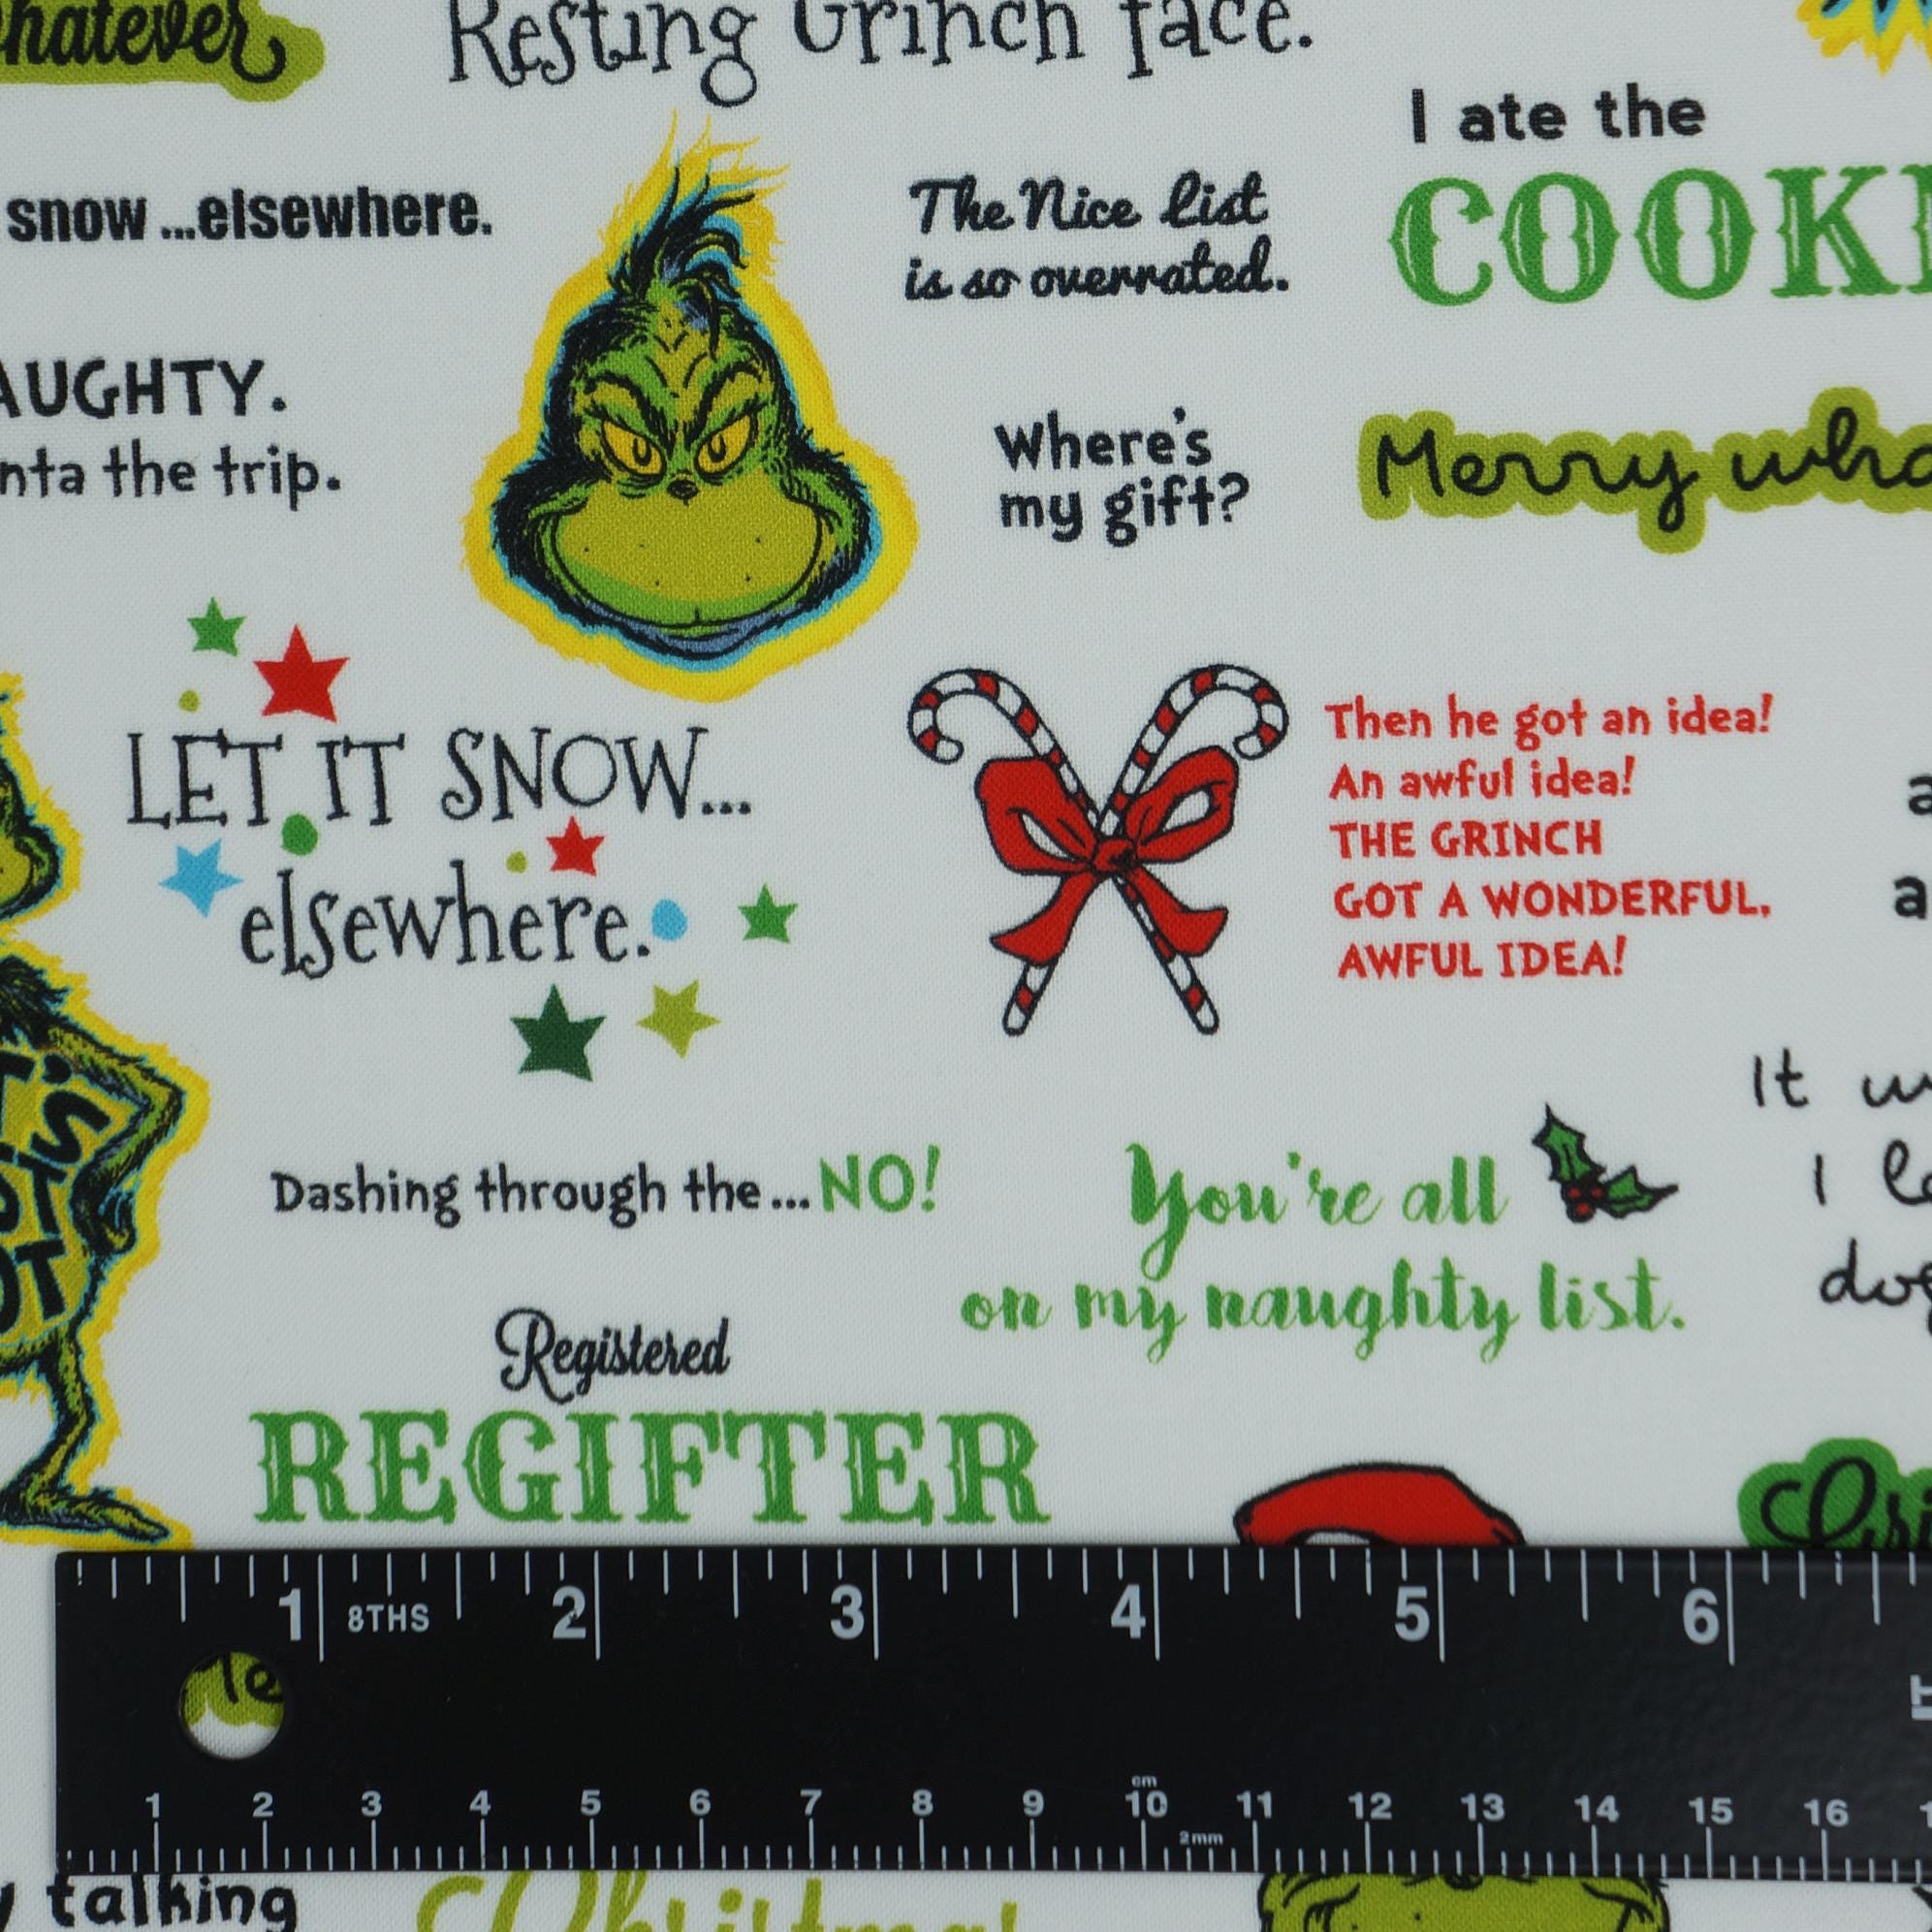 Resting Grinch face.
I ate the
snow ...elsewhere.
The Nice List
is so overrated.
Where's
my gift?
Merry
the trip.
LET IT SNOW...
elsewhere.
Then he got an idea!
An awful idea!
THE GRINCH
GOT A WONDERFUL,
AWFUL IDEA!
It
I
Dashing through the... NO!
You're all
on my naughty list.
Registered
REGIFTER
1 8THS 2 3 4 5 6
1 2 3 4 5 6 7 8 9 10 11 12 13 14 15 16
cm
2mm
talking